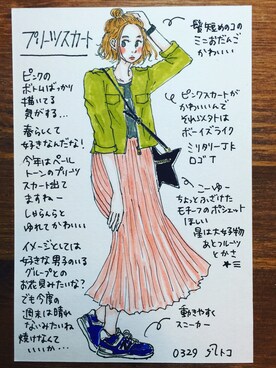 プリーツスカート
ピンクの
ボトムばっかり
描いてる
気がする…
春らしくて
好きなんだな！
今年はペール
トーンのプリーツ
スカート出て
ますね～
しゃらららと
ゆれてかわいい
イメージとしては
好きな男のいる
グループとの
お花見みたいな？
でも今度の
週末は晴れ
ないみたいね
焼けなくて
いいか…
髪短めのコの
ミニおだんご
かわいい
ピンクスカートが
かわいいんで
それ以外は
ボーイズライク
ミリタリーJK
ロゴT
こーゆー
ちょっとふざけた
モチーフのポシェット
ほしい
星は大好物
あとフルーツ
とかさ
動きやすく
スニーカー
0329